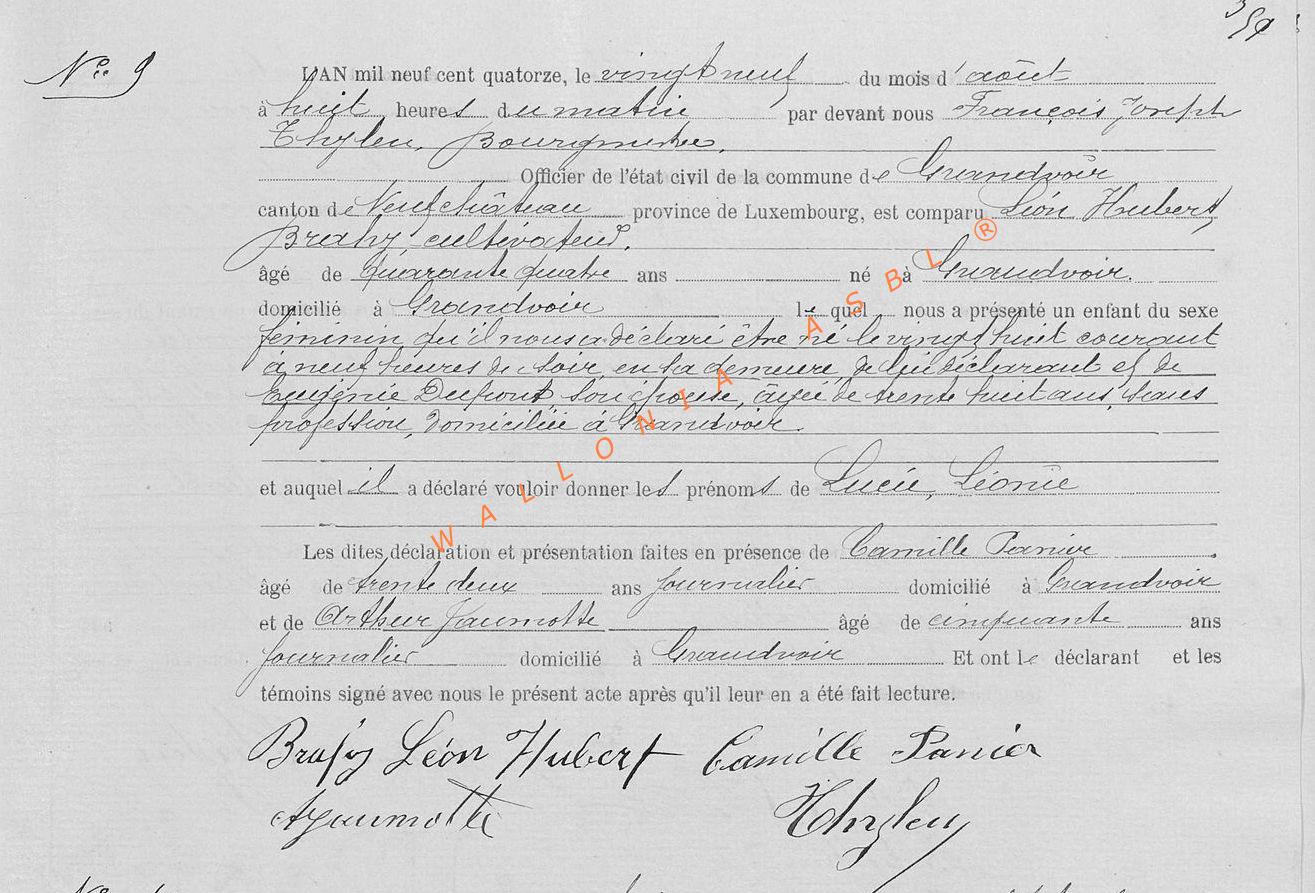 Nce 9
L'AN mil neuf cent quatorze, le vingt neuf du mois d'août
à huit heures du matin par devant nous François Joseph
Thylen, Bourgmestre,
Officier de l'état civil de la commune de Grandvoir
canton de Neufchâteau province de Luxembourg, est comparu Léon Hubert
Brahy cultivateur,
âgé de quarante quatre ans né à Grandvoir.
domicilié à Grandvoir lequel nous a présenté un enfant du sexe
féminin qu'il nous a déclaré être né le vingt huit courant
à neuf heures du soir, en sa demeure, de lui déclarant et de
Eugénie Dupont son épouse, âgée de trente huit ans, sans
profession, domiciliée à Grandvoir.
et auquel il a déclaré vouloir donner les prénoms de Lucie, Léonie
Les dites déclaration et présentation faites en présence de Camille Panier
âgé de trente deux ans journalier domicilié à Grandvoir
et de Arthur Jaumotte âgé de cinquante ans
journalier domicilié à Grandvoir Et ont le déclarant et les
témoins signé avec nous le présent acte après qu'il leur en a été fait lecture.
Brahy Léon Hubert Camille Panier
AJaumotte Thylen
WALLONIA ASBL ®